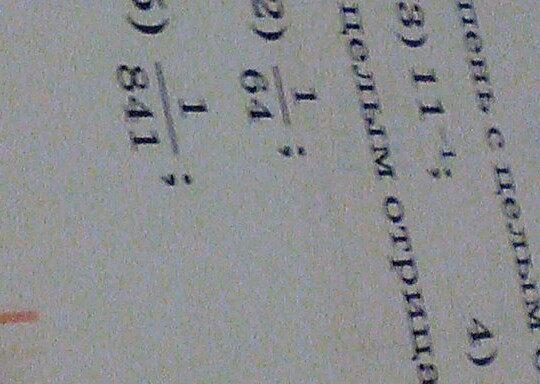 пень с целым
3) 11⁻¹; 4)
целым отрица
2) 1/64;
) 1/841;